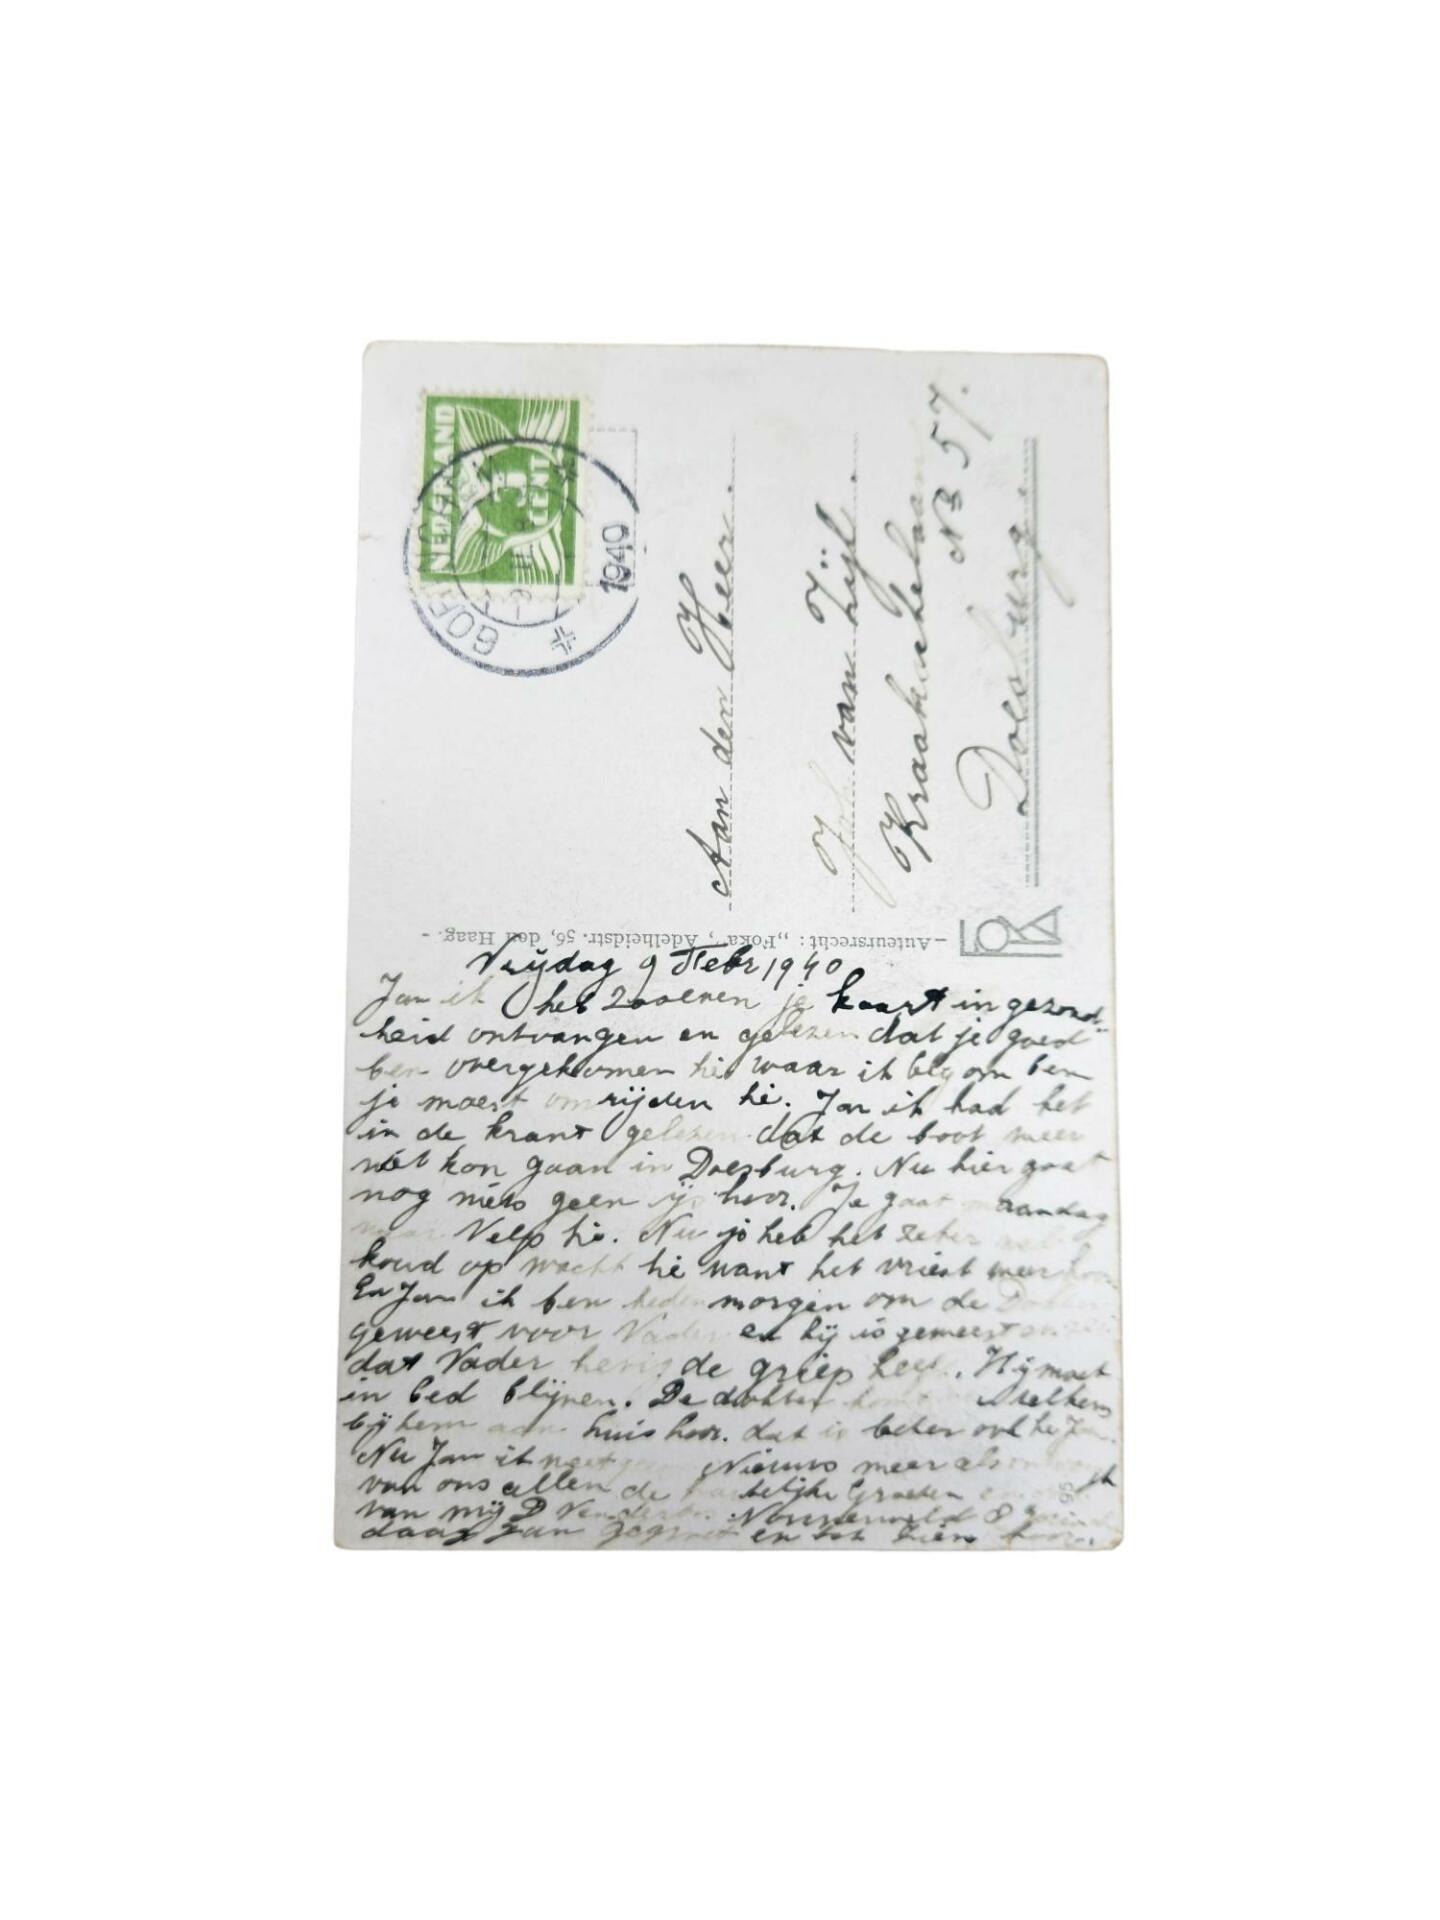 NEDERLAND
3 CENT
1940
Aan den Heer.
J van Zijl.
Kraakschelaan
No 57.
Doesburg
FOKA
— Auteursrecht: „Foka", Adelheidstr. 56, den Haag. -
Vrijdag 9 Febr 1940
Jan ik heb zooeven je kaart in gezond-
heid ontvangen en gelezen dat je goed
ben overgekomen hé waar ik bly om ben
je moest omrijden hé. Jan ik had het
in de krant gelezen dat de boot meer
niet kon gaan in Doesburg. Nu hier gaat
nog niets geen ijs hoor. Je gaat maandag
naar Velp hé. Nu je heb het zeker
koud op wacht hé want het vriest weer hoor
En Jan ik ben hedenmorgen om de Dokter
geweest voor Vader en hij is geweest en
dat Vader hevig de griep heeft. Hij moet
in bed blijven. De dokter komt telkens
bij hem aan huis hoor. dat is beter ook hé Jan.
Nu Jan ik weet geen Nieuws meer als
van ons allen de hartelijke Groeten
van mij D Nonnenveld 8
daag Jan Gegroet en tot ziens hoor.
95